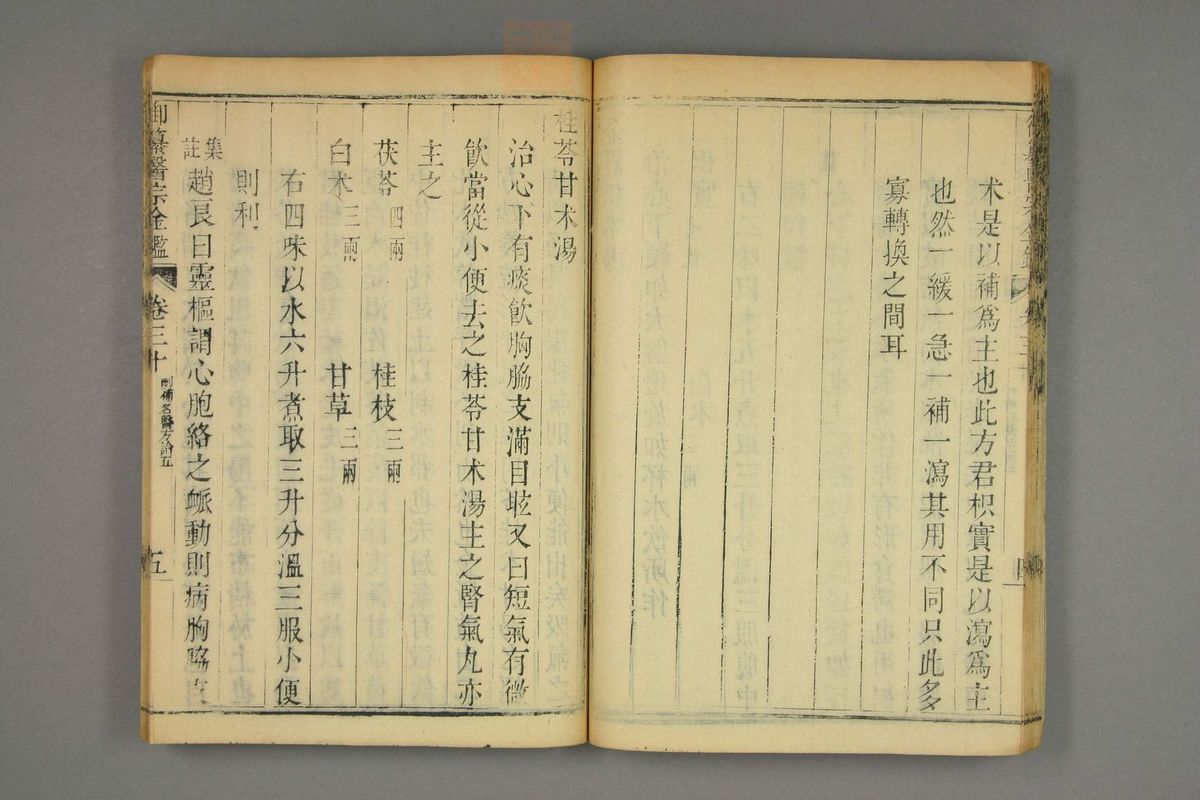 术是以補爲主也此方君枳實是以瀉爲主
也然一緩一急一補一瀉其用不同只此多
寡轉換之間耳
四
桂苓甘术湯
治心下有痰飲胸脇支滿目眩又曰短氣有微
飲當從小便去之桂苓甘术湯主之腎氣丸亦
主之
茯苓四兩 桂枝三兩
白术三兩 甘草三兩
右四味以水六升煮取三升分溫三服小便
則利
集註趙良曰靈樞謂心胞絡之衇動則病胸脇支
御纂醫宗金鑑 卷三十 刪補名醫方論五 五